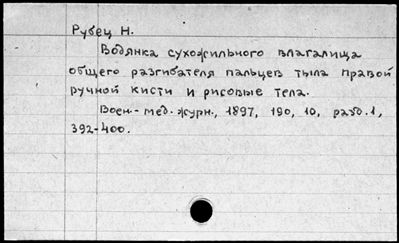 Рубец Н.
Водянка сухожильного влагалища
общего разгибателя пальцев тыла правой
ручной кисти и рисовые тела.
Воен.-мед. журн., 1897, 190, 10, разд. 1,
392-400.